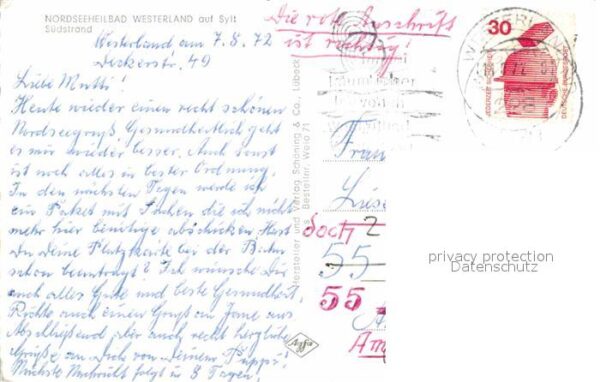 NORDSEEHEILBAD WESTERLAND auf Sylt
Südstrand
Westerland, am 7.8.72
Deckerstr. 49
Liebe Mutti!
Heute wieder einen recht schönen
Nordseegruß. Gesundheitlich geht
es mir wieder besser. Auch sonst
ist noch alles in bester Ordnung.
In den nächsten Tagen werde ich
ein Paket mit Sachen die ich nicht
mehr hier benötige abschicken. Hast
Du Deine Platzkarte bei der Bahn
schon beantragt? Ich wünsche Dir
auch alles Gute und beste Gesundheit.
Richte auch einen Gruß an aus
Abschließend aber auch recht herzliche
Grüße an Dich von Deinem Puppi!
Nächste Nachricht folgt in 3 Tagen!
Hersteller und Verlag Schöning & Co., Lübeck
Bestellnr. Weld 71
Die rote Anschrift
ist richtig!
30
JEDERZEIT SICHERHEIT
DEUTSCHE BUNDESPOST
Frau
Luise
2
55
55
Am
privacy protection
Datenschutz